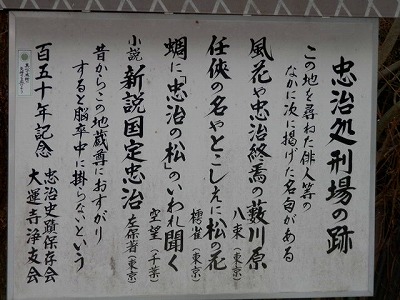 忠治処刑場の跡
この地を尋ねた俳人等の
なかに次に掲げた名句がある
風花や忠治終焉の藪川原
八束(東京)
任侠の名やとこしえに松の花
樗雀(東京)
蜩に「忠治の松」のいわれ聞く
空望(千葉)
小説 新説国定忠治
左保著(東京)
昔からこの地蔵尊におすがり
すると脳卒中に掛らないという
百五十年記念
忠治史蹟保存会
大運寺浄友会